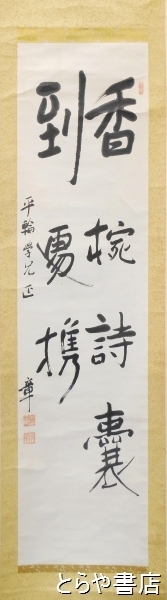 香椀詩囊
到處携
平輪学兄正
章
とらや書店